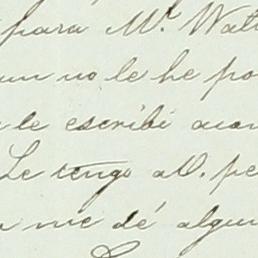 para Mr. Walt
un no le he po
le escribí acom
Le tengo a V. pe
me dé algun